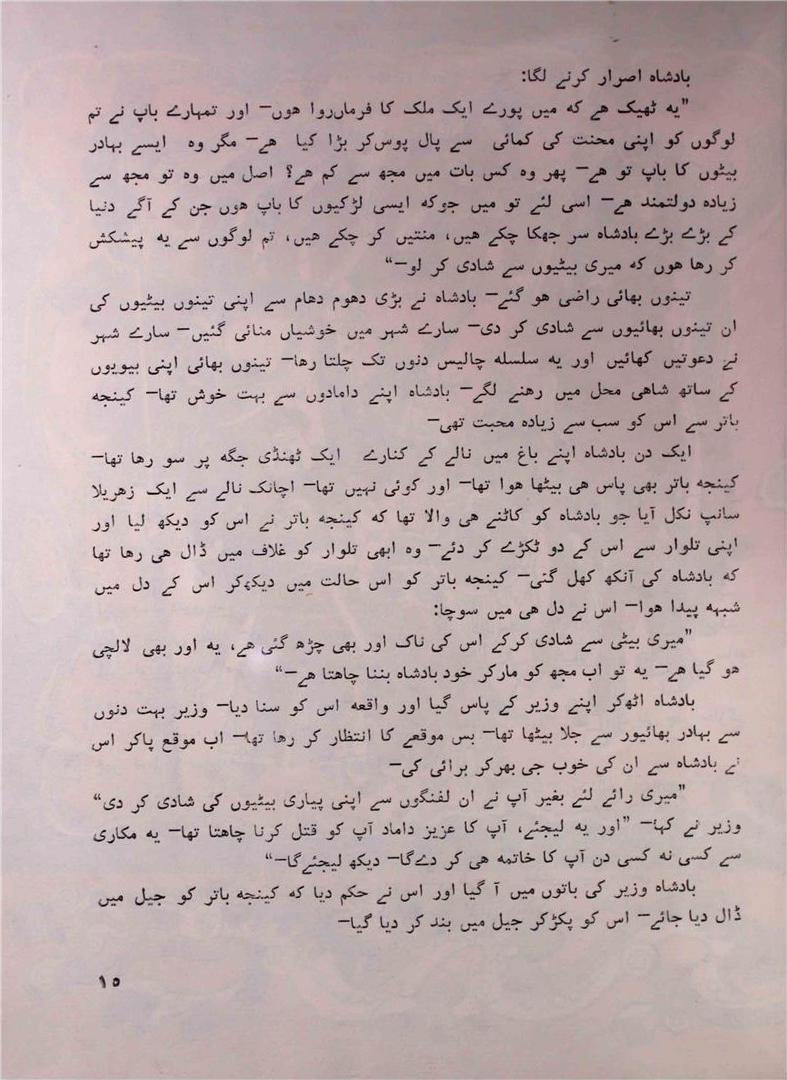 بادشاہ اصرار کرنے لگا:
”یه ٹھیک ھے که میں پورے ایک ملک کا فرماںروا ھوں— اور تمہارے باپ نے تم
لوگوں کو اپنی محنت کی کمائی سے پال پوسکر بڑا کیا ھے— مگر وہ ایسے بہادر
بیٹوں کا باپ تو ھے— پھر وہ کس بات میں مجھ سے کم ھے؟ اصل میں وہ تو مجھ سے
زیادہ دولتمند ھے— اسی لئے تو میں جوکه ایسی لڑکیوں کا باپ ھوں جن کے آگے دنیا
کے بڑے بڑے بادشاہ سر جھکا چکے ھیں، منتیں کر چکے ھیں، تم لوگوں سے یه پیشکش
کر رھا ھوں که میری بیٹیوں سے شادی کر لو—“
تینوں بھائی راضی ھو گئے— بادشاہ نے بڑی دھوم دھام سے اپنی تینوں بیٹیوں کی
ان تینوں بھائیوں سے شادی کر دی— سارے شہر میں خوشیاں منائی گئیں— سارے شہر
نے دعوتیں کھائیں اور یه سلسله چالیس دنوں تک چلتا رھا— تینوں بھائی اپنی بیویوں
کے ساتھ شاھی محل میں رھنے لگے— بادشاہ اپنے دامادوں سے بہت خوش تھا— کینجه
باتر سے اس کو سب سے زیادہ محبت تھی—
ایک دن بادشاہ اپنے باغ میں نالے کے کنارے ایک ٹھنڈی جگه پر سو رھا تھا—
کینجه باتر بھی پاس ھی بیٹھا ھوا تھا— اور کوئی نہیں تھا— اچانک نالے سے ایک زھریلا
سانپ نکل آیا جو بادشاہ کو کاٹنے ھی والا تھا که کینجه باتر نے اس کو دیکھ لیا اور
اپنی تلوار سے اس کے دو ٹکڑے کر دئے— وہ ابھی تلوار کو غلاف میں ڈال ھی رھا تھا
که بادشاہ کی آنکھ کھل گئی— کینجه باتر کو اس حالت میں دیکھکر اس کے دل میں
شبہه پیدا ھوا— اس نے دل ھی میں سوچا:
”میری بیٹی سے شادی کرکے اس کی ناک اور بھی چڑھ گئی ھے، یه اور بھی لالچی
ھو گیا ھے— یه تو اب مجھ کو مارکر خود بادشاہ بننا چاھتا ھے—“
بادشاہ اٹھکر اپنے وزیر کے پاس گیا اور واقعه اس کو سنا دیا— وزیر بہت دنوں
سے بہادر بھائیور سے جلا بیٹھا تھا— بس موقعے کا انتظار کر رھا تھا— اب موقع پاکر اس
نے بادشاہ سے ان کی خوب جی بھرکر برائی کی—
”میری رائے لئے بغیر آپ نے ان لفنگوں سے اپنی پیاری بیٹیوں کی شادی کر دی“
وزیر نے کہا— ”اور یه لیجئے، آپ کا عزیز داماد آپ کو قتل کرنا چاھتا تھا— یه مکاری
سے کسی نه کسی دن آپ کا خاتمه ھی کر دےگا— دیکھ لیجئےگا—“
بادشاہ وزیر کی باتوں میں آ گیا اور اس نے حکم دیا که کینجه باتر کو جیل میں
ڈال دیا جائے— اس کو پکڑکر جیل میں بند کر دیا گیا—
۱۵